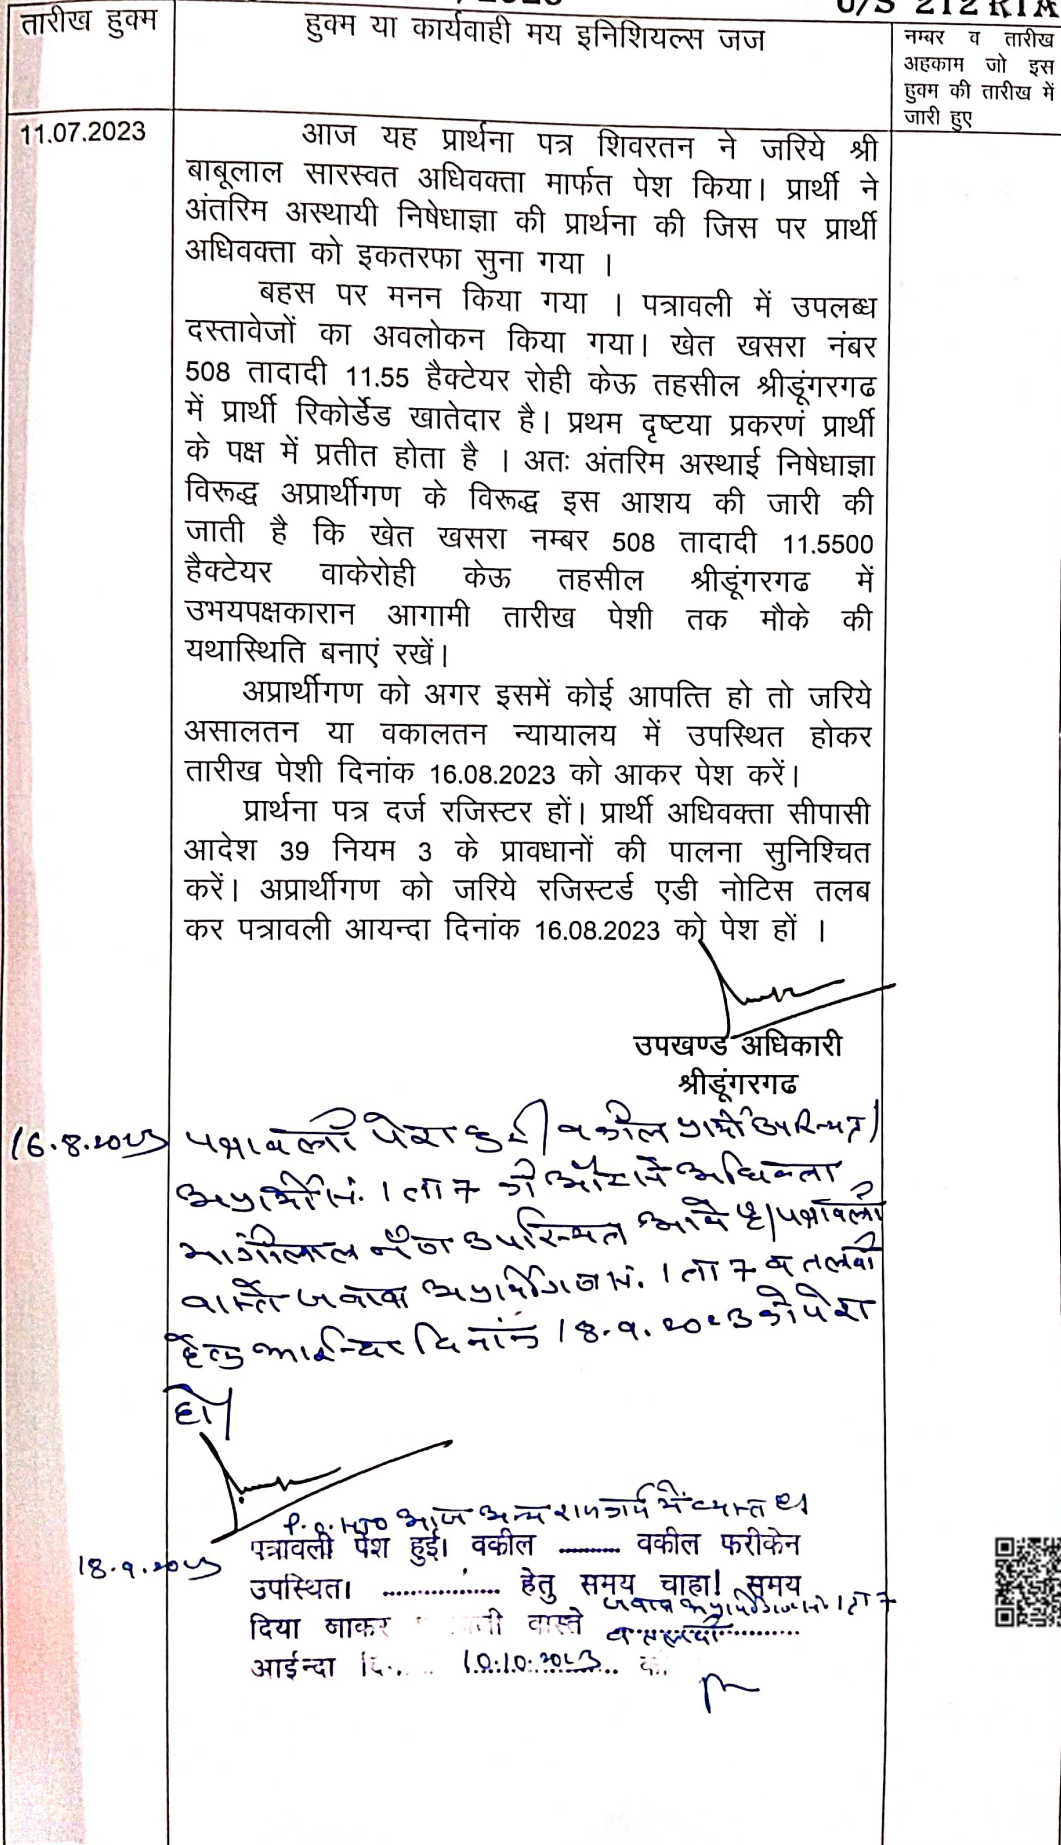 /2023
U/S 212 RTA
तारीख हुक्म
हुक्म या कार्यवाही मय इनिशियल्स जज
नम्बर व तारीख
अहकाम जो इस
हुक्म की तारीख में
जारी हुए
11.07.2023
आज यह प्रार्थना पत्र शिवरतन ने जरिये श्री
बाबूलाल सारस्वत अधिवक्ता मार्फत पेश किया। प्रार्थी ने
अंतरिम अस्थायी निषेधाज्ञा की प्रार्थना की जिस पर प्रार्थी
अधिवक्ता को इकतरफा सुना गया ।
बहस पर मनन किया गया । पत्रावली में उपलब्ध
दस्तावेजों का अवलोकन किया गया। खेत खसरा नंबर
508 तादादी 11.55 हैक्टेयर रोही केऊ तहसील श्रीडूंगरगढ
में प्रार्थी रिकोर्डेड खातेदार है। प्रथम दृष्टया प्रकरणं प्रार्थी
के पक्ष में प्रतीत होता है । अतः अंतरिम अस्थाई निषेधाज्ञा
विरूद्ध अप्रार्थीगण के विरूद्ध इस आशय की जारी की
जाती है कि खेत खसरा नम्बर 508 तादादी 11.5500
हैक्टेयर वाकेरोही केऊ तहसील श्रीडूंगरगढ में
उभयपक्षकारान आगामी तारीख पेशी तक मौके की
यथास्थिति बनाएं रखें।
अप्रार्थीगण को अगर इसमें कोई आपत्ति हो तो जरिये
असालतन या वकालतन न्यायालय में उपस्थित होकर
तारीख पेशी दिनांक 16.08.2023 को आकर पेश करें।
प्रार्थना पत्र दर्ज रजिस्टर हों। प्रार्थी अधिवक्ता सीपासी
आदेश 39 नियम 3 के प्रावधानों की पालना सुनिश्चित
करें। अप्रार्थीगण को जरिये रजिस्टर्ड एडी नोटिस तलब
कर पत्रावली आयन्दा दिनांक 16.08.2023 को पेश हों ।
उपखण्ड अधिकारी
श्रीडूंगरगढ
16.8.2023 पत्रावली पेश हुई। वकील प्रार्थी उपस्थित।
अप्रार्थी सं. 1 ता 7 की ओर से अधिवक्ता
मांगीलाल नैण उपस्थित आये है। पत्रावली
वास्ते जवाब अप्रार्थीगण सं. 1 ता 7 व तलबी
हेतु आईन्दा दिनांक 18.9.2023 को पेश
हो।
P.O. आज अन्य राजकार्य में व्यस्त है।
18.9.2023
पत्रावली पेश हुई। वकील ......... वकील फरीकेन
उपस्थित। ................. हेतु समय चाहा! समय
जवाब अप्रार्थीगण सं. 1 ता 7
दिया जाकर वास्ते व तलबी
आईन्दा दि. 10.10.2023